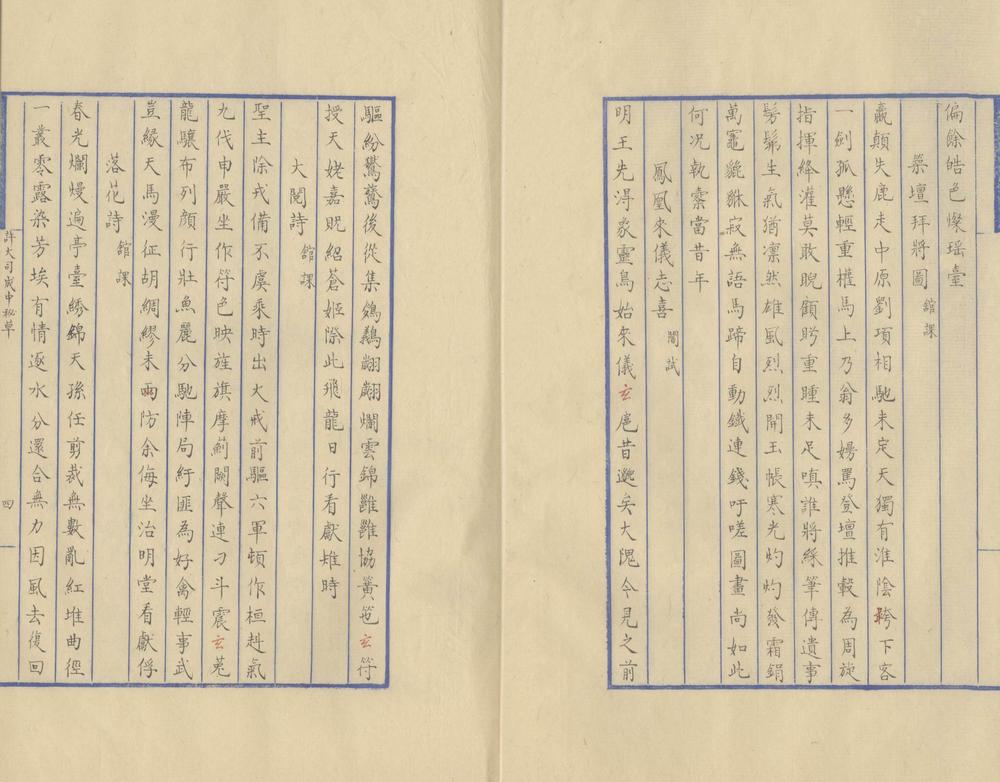 偏餘皓色燦瑶臺
築壇拜將圖 館課
嬴顛失鹿走中原劉項相馳未定天獨有淮陰胯下客
一劍孤懸輕重權馬上乃翁多嫚罵登壇推轂為周旋
指揮絳灌莫敢睨顧盻重瞳未足嗔誰將綵筆傳遺事
髣髴生氣猶凛然雄風烈烈開玉帳寒光灼灼發霜鋗
萬竈貔貅寂無語馬蹄自動鐵連錢吁嗟圖畫尚如此
何况執櫜當昔年
鳳凰來儀志喜 閣試
明王先淂象靈鳥始來儀玄扈昔邈矣大隗今見之前
驅紛鷟鷟後從集鵷鷊翽翽爛雲錦雝雝協簧笹玄符
授天姥嘉貺紹蒼姬際此飛龍日行看獻雉時
大閱詩 館課
聖主除戎備不虞乘時出火戒前驅六軍頓作桓赳氣
九伐申嚴坐作符色映旌旗摩薊闕聲連刁斗震玄菟
龍驤布列顔行壯魚麗分馳陣局紆匪為好禽輕事武
豈緣天馬漫征胡綢繆未雨防余侮坐治明堂看獻俘
落花詩 館課
春光爛熳遍亭臺綉錦天孫任剪裁無數亂紅堆曲徑
一叢零露染芳埃有情逐水分還合無力因風去復回
許大司成申秘草
四